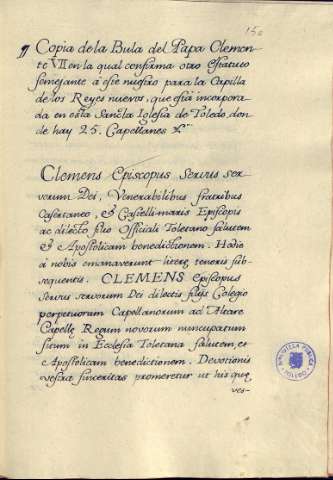 150
¶ Copia de la Bula del Papa Clemen-
te VII en la qual confirma otro estatuto
semejante á este nuestro para la Capilla
de los Reyes nuevos, que está incorpora
da en esta Sancta Iglesia de Toledo don
de hay 25. Capellanes
Clemens Episcopus Servus ser-
vorum Dei, Venerabilibus fratribus
Casertaneo, & Castellimaris Episcopis
ac dilecto filio Officiali Toletano salutem
& Apostolicam benedictionem. Hodie
à nobis emanaverunt litere tenoris sub-
sequentis. CLEMENS Episcopus
servus servorum Dei dilectis filijs Colegio
perpetuorum Capellanorum ad Altare
Capelle Regum novorum nuncupatum
situm in Ecclesia Toletana salutem, et
Apostolicam benedictionem. Devotionis
vestrae sinceritas promeretur ut his que
ves-
BIBLIOTECA PUBLICA
TOLEDO